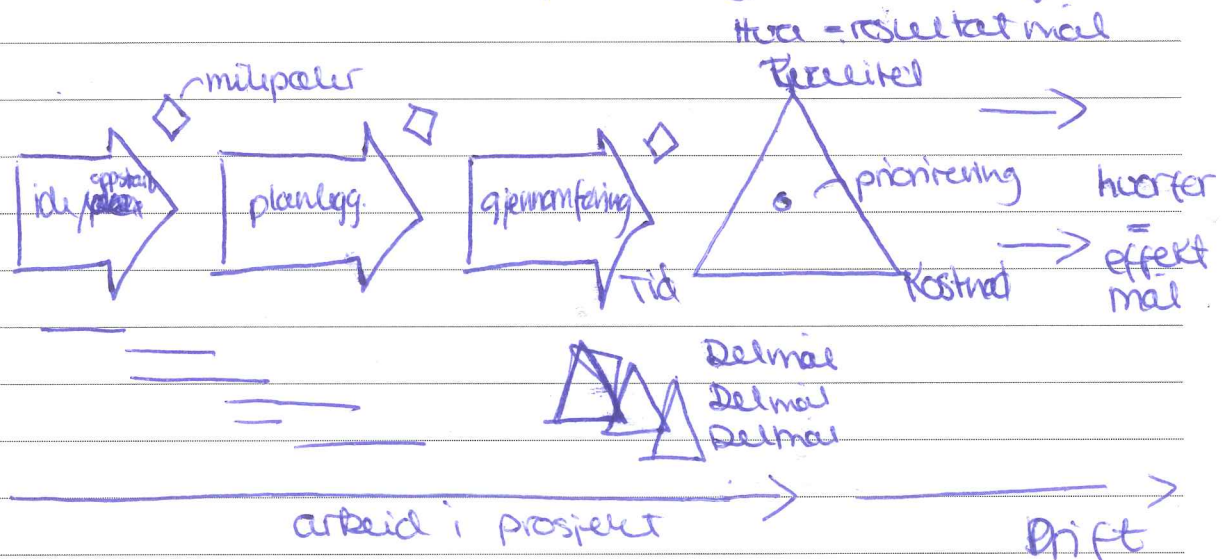 Hva = resultatmål
Kvalitet
milepæler
ide/oppstart
planlegg.
gjennomføring
prioritering
hvorfor
=
effekt
mål
Tid
Kostnad
Delmål
Delmål
Delmål
arbeid i prosjekt
Drift